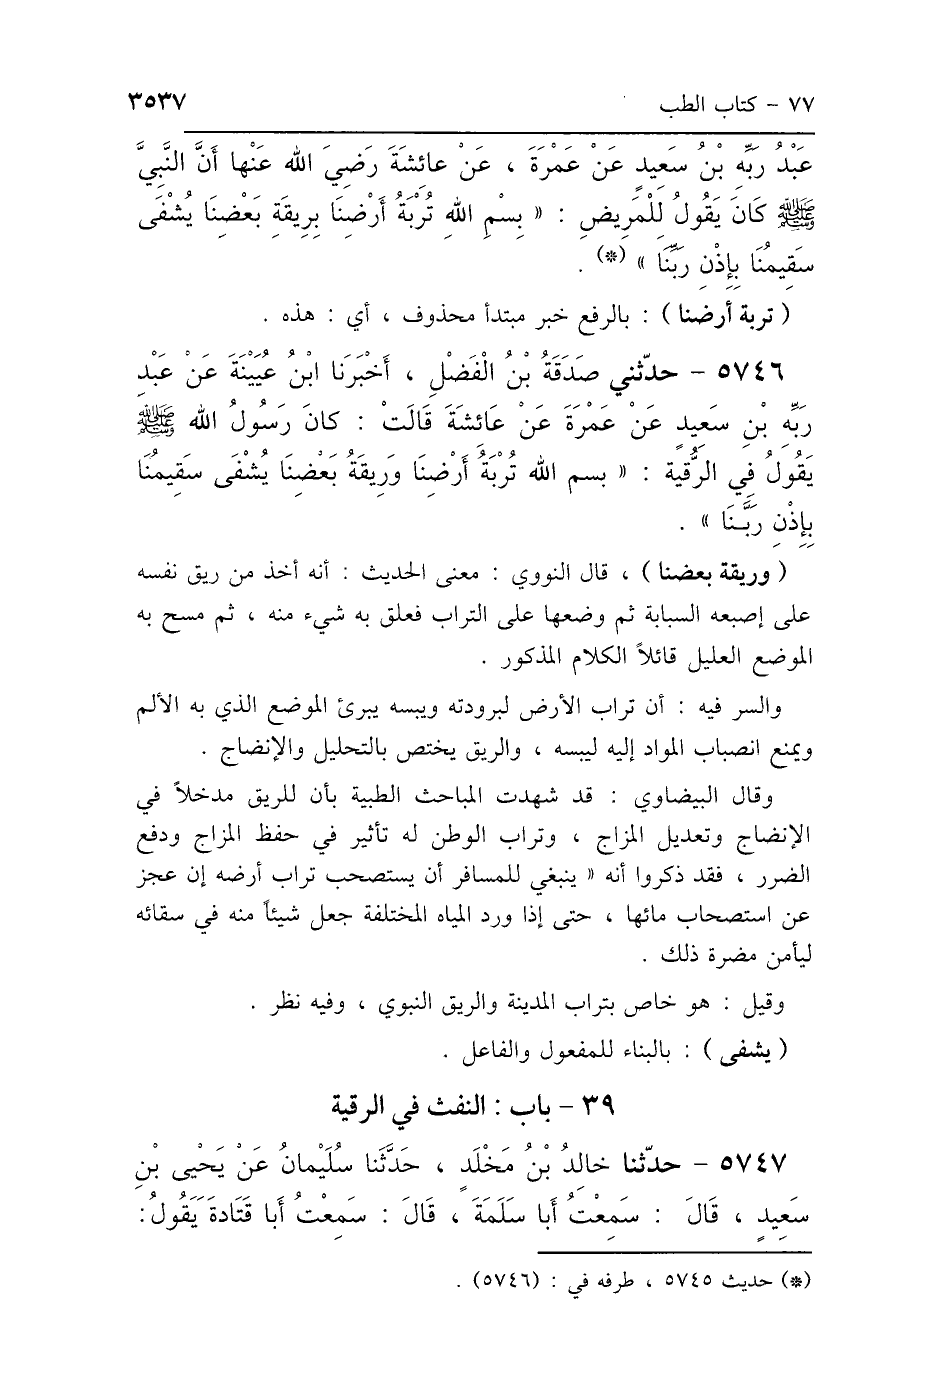 ٧٧ - كتاب الطب ٣٥٣٧
عَبْدُ رَبِّهِ بْنُ سَعِيدٍ عَنْ عَمْرَةَ ، عَنْ عائشَةَ رَضِيَ الله عَنْها أَنَّ النَّبِيَّ
ﷺ كَانَ يَقُولُ لِلْمَرِيضِ : « بِسْمِ اللهِ تُرْبَةُ أَرْضِنَا بِرِيقَةِ بَعْضِنَا يُشْفَى
سَقِيمُنَا بِإِذْنِ رَبِّنَا » (*) .
( تربة أرضنا ) : بالرفع خبر مبتدأ محذوف ، أي : هذه .
٥٧٤٦ - حدّثني صَدَقَةُ بْنُ الْفَضْلِ ، أَخْبَرَنا ابْنُ عُيَيْنَةَ عَنْ عَبْدِ
رَبِّهِ بْنِ سَعِيدٍ عَنْ عَمْرَةَ عَنْ عَائشَةَ قَالَتْ : كانَ رَسُولُ الله ﷺ
يَقُولُ فِي الرُّقيةِ : « بسم الله تُرْبَةُ أَرْضِنَا وَرِيقَةُ بَعْضِنَا يُشْفَى سَقِيمُنَا
بِإِذْنِ رَبَّنَا » .
( وريقة بعضنا ) ، قال النووي : معنى الحديث : أنه أخذ من ريق نفسه
على إصبعه السبابة ثم وضعها على التراب فعلق به شيء منه ، ثم مسح به
الموضع العليل قائلاً الكلام المذكور .
والسر فيه : أن تراب الأرض لبرودته ويبسه يبرئ الموضع الذي به الألم
ويمنع انصباب المواد إليه ليبسه ، والريق يختص بالتحليل والإنضاج .
وقال البيضاوي : قد شهدت المباحث الطبية بأن للريق مدخلاً في
الإنضاج وتعديل المزاج ، وتراب الوطن له تأثير في حفظ المزاج ودفع
الضرر ، فقد ذكروا أنه « ينبغي للمسافر أن يستصحب تراب أرضه إن عجز
عن استصحاب مائها ، حتى إذا ورد المياه المختلفة جعل شيئاً منه في سقائه
ليأمن مضرة ذلك .
وقيل : هو خاص بتراب المدينة والريق النبوي ، وفيه نظر .
( يشفى ) : بالبناء للمفعول والفاعل .
٣٩ - باب : النفث في الرقية
٥٧٤٧ - حدّثنا خالدُ بْنُ مَخْلَدٍ ، حَدَّثَنا سُلَيْمانُ عَنْ يَحْيى بْنِ
سَعِيدٍ ، قَالَ : سَمِعْتُ أَبا سَلَمَةَ ، قَالَ : سَمِعْتُ أَبا قَتَادةَ يَقُولُ :
(*) حديث ٥٧٤٥ ، طرفه في : (٥٧٤٦) .